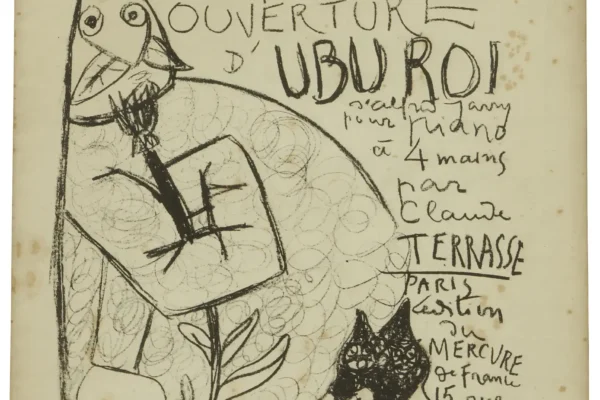 OUVERTURE
D' UBU ROI
d'alfred Jarry
pour piano
à 4 mains
par
Claude
TERRASSE
PARIS
édition
du
MERCURE
de France
15 rue